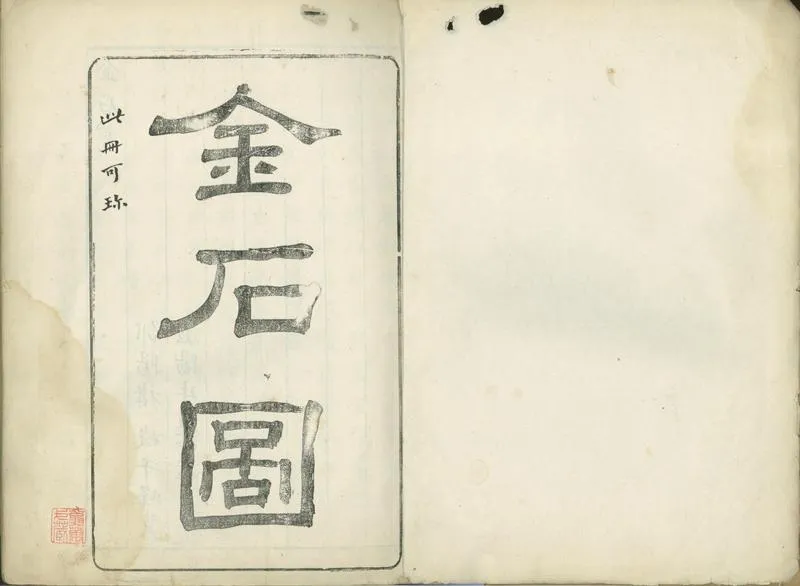 金石圖
此冊可珎